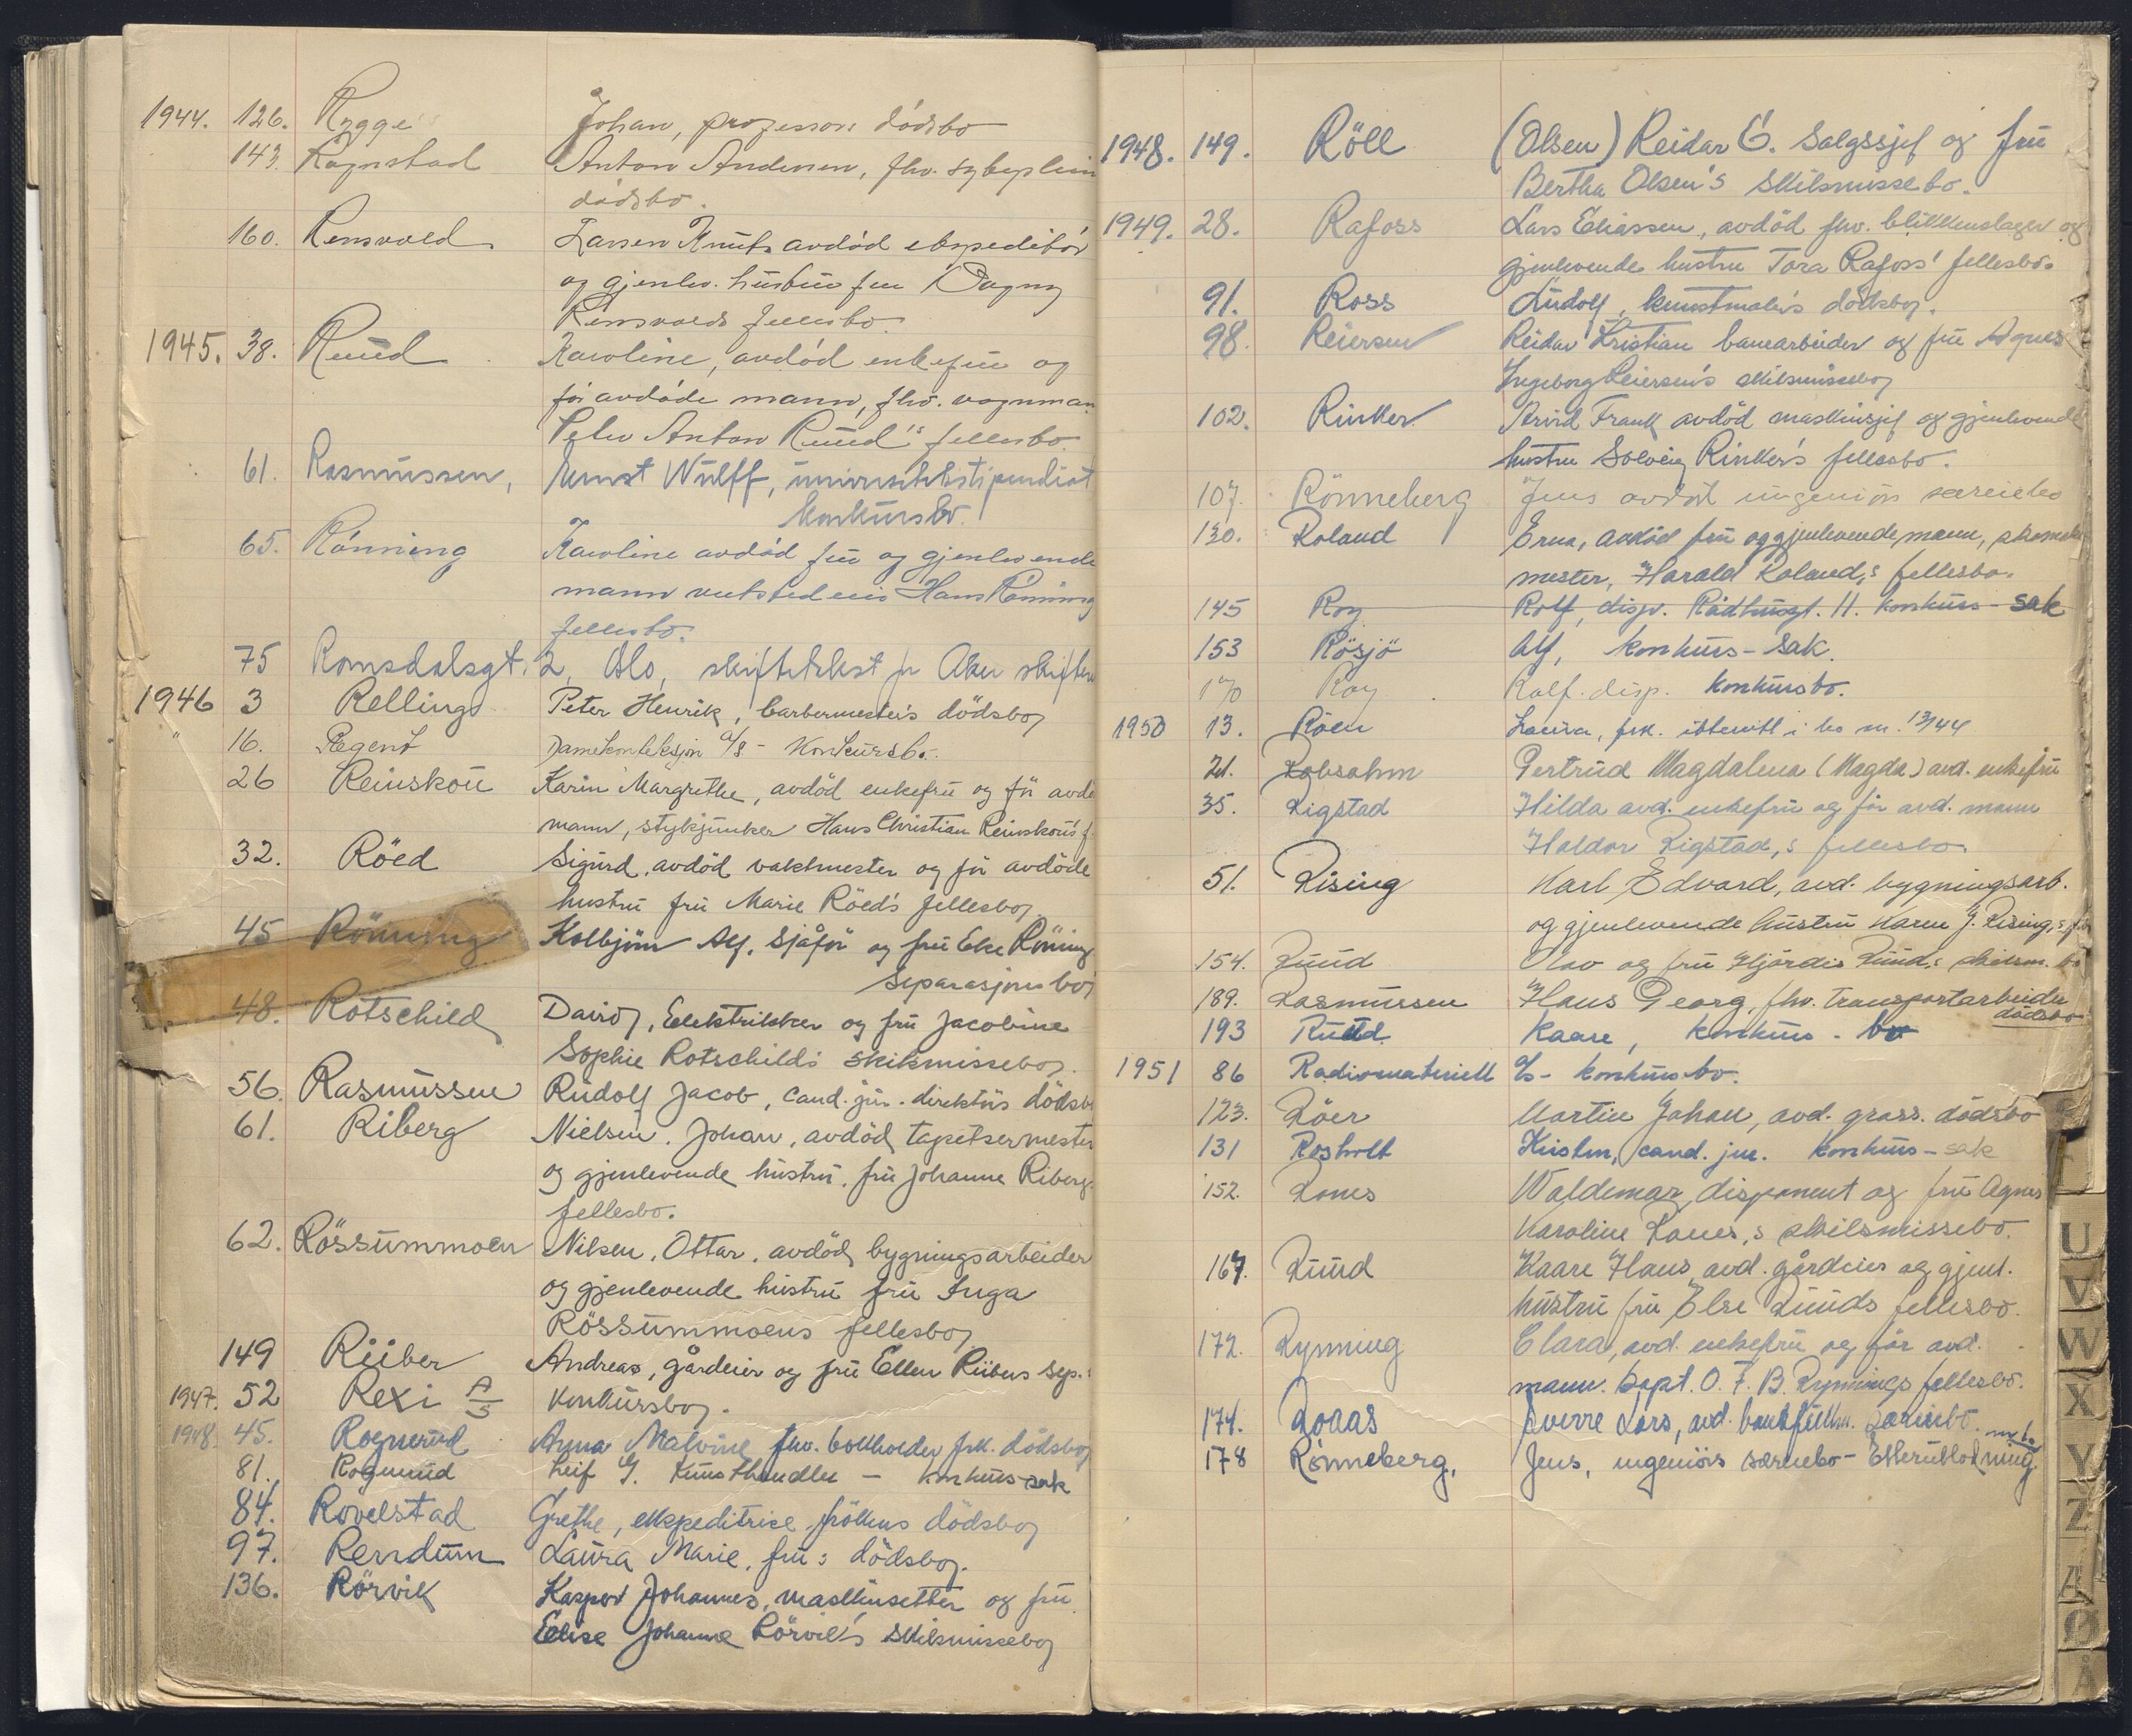 1944. 126. Rygge Johan, professors dödsbo
143. Rognstad Anton Andersen, fhv.
dödsbo.
160. Rensvold Larsen Knuts avdöd ekspeditör
og gjenlev. hustru fru Dagny
Rensvolds fellesbo.
1945. 38. Ruud Karoline, avdöd enkefru og
för avdöde mann, fhv. vognman
Peter Anton Ruud's fellesbo
61. Rasmussen, Ernst Wulff, universitetsstipendiat
konkursbo.
65. Rönning Karoline avdöd fru og gjenlevende
mann Hans Rönning
fellesbo.
75 Romsdalsgt. 2, Oslo, skiftetakst fr Aker skifter
1946 3 Relling Peter Henrik, barbermester's dödsbo
" 16. Regent Damekonfeksjon A/S - Konkursbo.
26 Reinskou Karin Margrethe, avdöd enkefru og för avdö
mann, stykjunker Hans Christian Reinskou's f
32. Röed Sigurd, avdöd vaktmester og för avdöde
hustru fru Marie Röed's fellesbo
45 Rönning Kolbjörn Alf, Sjåför og fru Else Röning
Separasjonsbo
48. Rotschild David, Elektrikker og fru Jacobine
Sophie Rotschilds skilsmissebo.
56. Rasmussen Rudolf Jacob, cand. jur. direktörs dödsb
61. Riberg Nielsen, Johan, avdöd tapetsermester
og gjenlevende hustru, fru Johanne Riberg
fellesbo.
62. Rössummoen Nilsen, Ottar, avdöd bygningsarbeider
og gjenlevende hustru fru Inga
Rössummoens fellesbo
149 Riiber Andreas, gårdeier og fru Ellen Riibers sep.:
1947. 52 Rexi A/S konkursbo.
1948. 45. Rognerud Anna Malvine fhv. bokholder frk. dödsbo
81. Rognerud Leif G. Kunsthandler - konkurs-sak
84. Rovelstad Grethe, ekspeditrise frökens dödsbo
97. Rendum Laura Marie, fru's dödsbo.
136. Rörvik Kasper Johannes, maskinsetter og fru
Elise Johanne Rörvik's skilsmissebo
1948. 149. Röll (Olsen) Reidar E. Salgssjef og fru
Bertha Olsen's skilsmissebo.
1949. 28. Rafoss Lars Eliassen, avdöd fhv. blikkenslager og
gjenlevende hustru Tora Rafoss' fellesbo.
91. Ross Ludolf, kunstmaler's dödsbo.
98. Reiersen Reidar Kristian banearbeider og fru Agnes
Ingeborg Reiersen's skilsmissebo
102. Rinker Arvid Frank avdöd maskinsjef og gjenlevende
hustru Solveig Rinker's fellesbo.
107. Rönneberg Jens avdöd ingeniör særeiebo
130. Roland Erna, avdöd fru og gjenlevende mann, skomaker
mester, Harald Roland,s fellesbo.
145 Roy Rolf, disp. Rådhusgt. 11. konkurs-sak
153 Rösjö Alf, konkurs-sak.
170 Roy Rolf. disp. konkursbo.
1950 13. Röen Laura, frk. i bo nr. 13/44
21. Robsahm Gertrud Magdalena (Magda) avd. enkefru
35. Rigstad Hilda avd. enkefru og för avd. mann
Haldor Rigstad,s fellesbo
51. Rising Karl Edvard, avd. bygningsarb.
og gjenlevende hustru Karen J. Rising,s f
154. Ruud Olav og fru Hjördis Ruud,s skilsm. bo
189. Rasmussen Hans Georg, fhv. transportarbeider
dödsbo
193 Ruud Kaare, konkurs - bo
1951 86 Radiomateriell A/s - konkursbo.
123. Röer Martin Johan, avd. gross. dödsbo
131 Rosholt Kristen, cand. jur. konkurs-sak
152. Rones Waldemar, disponent og fru Agnes
Karoline Rones,s skilsmissebo.
167. Ruud Kaare Hans avd. gårdeier og gjenl.
hustru fru Else Ruuds fellesbo.
172. Rynning Clara, avd. enkefru og för avd.
mann. kapt. O. F. B. Rynnings fellesbo.
174. Roaas Sverre Lars, avd. bankfullm. særeiebo.
178 Rönneberg, Jens, ingeniörs særeiebo - Etterutlodning.
U
V
W
X
Y
Z
Æ
Ø
Å